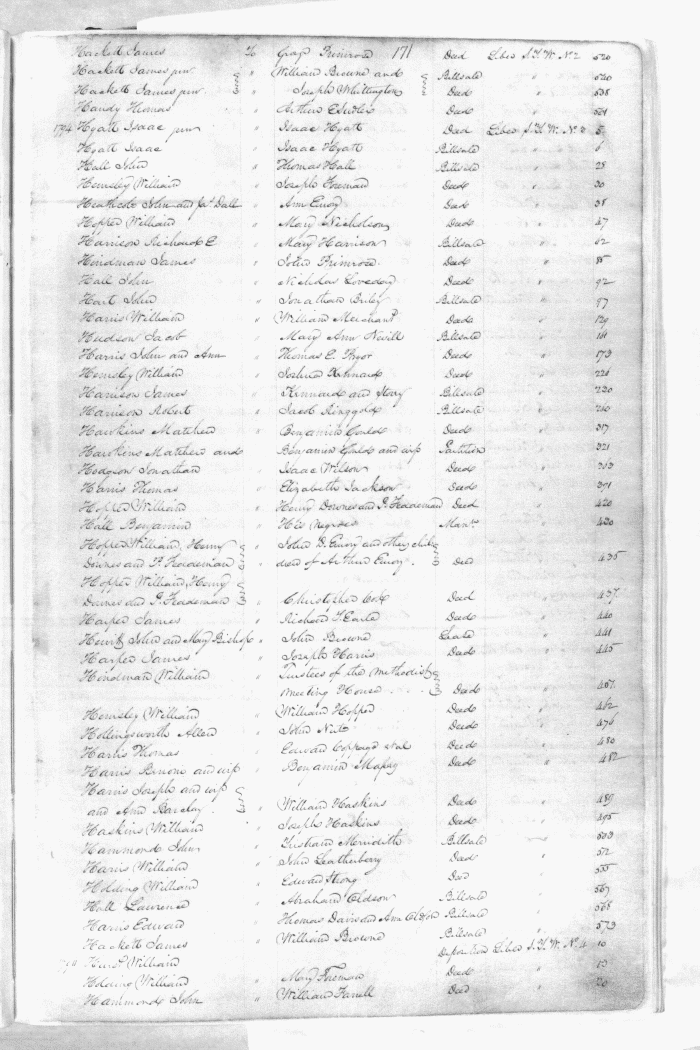 Hackett James to Gray Primrose 171 Deed Liber S.T.W. No. 2 520
Hackett James jun " William Browne and Billsale " 520
Hackett James jun " Joseph Whittington Deed " 538
Handy Thomas " Arthur Deed "
1794 Hyatt Isaac jun " Isaac Hyatt Deed Liber S.T.W. No. 3 5
Hyatt Isaac " Isaac Hyatt Billsale " 6
Hall John " Thomas Hall Billsale " 28
Hemsley William " Joseph Foreman Deed " 30
Heathcote John and Dall " Ann Emory Deed " 38
Hopper William " Mary Nicholson Deed " 47
Harrison Richard C " Mary Harrison Billsale " 62
Hindman James " John Primrose Deed " 85
Hall John " Nicholas Loveday Deed " 92
Hart John " Jonathan Billsale " 97
Harris William " William Merchant Deed " 129
Hudson Jacob " Mary Ann Nevill Billsale " 161
Harris John and Ann " Thomas C. Pryor Deed " 173
Hemsley William " Joshua Kennard Deed " 226
Harrison James " Kennard and Story Billsale " 230
Harrison Robert " Jacob Ringgold Billsale " 240
Hawkins Matthew " Benjamin Gould Deed " 317
Hawkins Matthew and " Benjamin Gould and wife Partition " 321
Hodgson Jonathan " Isaac Wilson Deed " 363
Harris Thomas " Elizabeth Jackson Deed " 391
Hopper William " Henry Downes and P. Feddeman Deed " 420
Hall Benjamin " His Negroes Man. " 430
Hopper William, Henry " John D. Emory and other chil
Downes and P. Feddeman dren of Arthur Emory. Deed " 435
Hopper William, Henry
Downes and P. Feddeman " Christopher Cox Deed " 437
Harper James " Richard T. Earle Deed " 440
Hewitt John and Mary Bishop " John Browne Lease " 441
Harper James " Joseph Harris Deed " 445
Hindman William " Trustees of the Methodist
Meeting House Deed " 467
Hemsley William " William Hopper Deed " 462
Hollingsworth Allen " John Deed " 476
Harris Thomas " Edward Coppage et al Deed " 480
Harris and wife " Benjamin Deed " 482
Harris Joseph and wife
and Ann Barclay " William Haskins Deed " 489
Haskins William " Joseph Haskins Deed " 495
Hammond John " Tristram Meridith Billsale " 503
Harris William " John Leatherbury Deed "
Holding William " Edward Strong Deed " 555
Hall Laurence " Abraham Oldson Billsale " 567
Harris Edward " Thomas Davis and Ann Oldson Billsale " 568
Hackett James " William Browne Billsale " 573
William Deposition Liber S.T.W. No. 4 10
Holding William " Mary Foreman Deed " 13
Hammond John " William Farrell Deed " 20